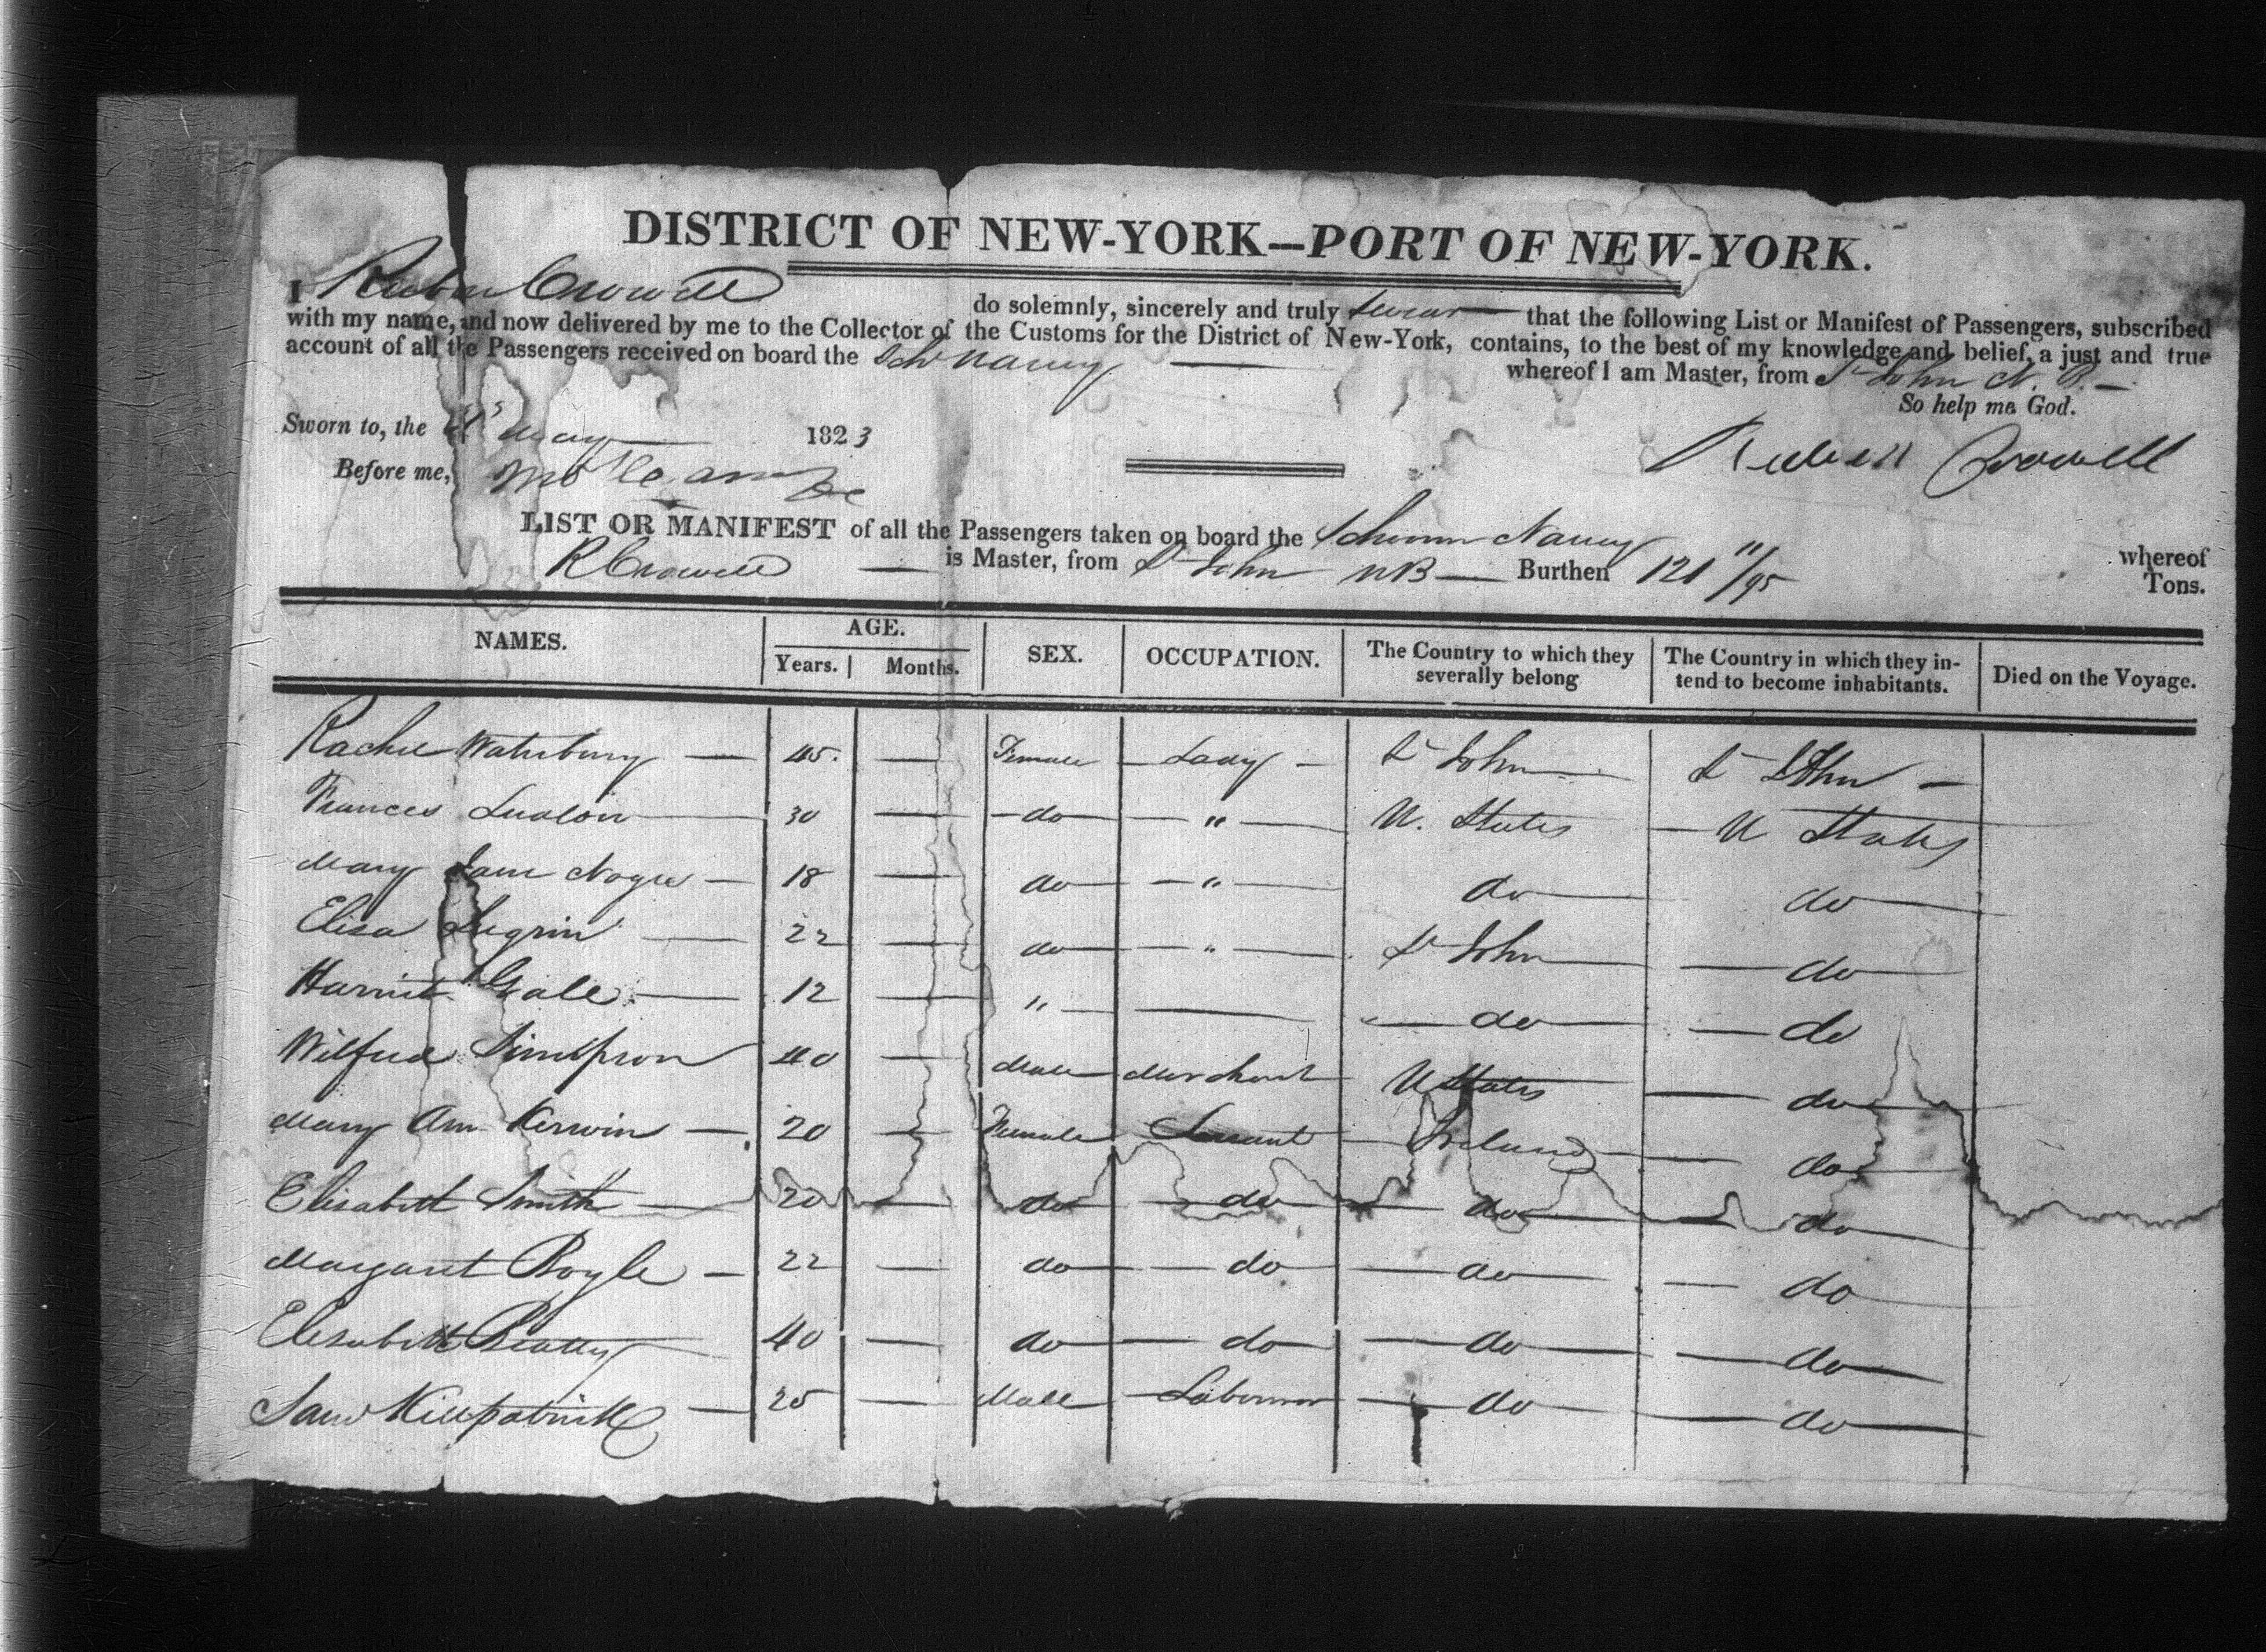 DISTRICT OF NEW-YORK—PORT OF NEW-YORK.
I Reuben Crowell do solemnly, sincerely and truly swear — that the following List or Manifest of Passengers, subscribed
with my name, and now delivered by me to the Collector of the Customs for the District of New-York, contains, to the best of my knowledge and belief, a just and true
account of all the Passengers received on board the Schr Nancy — whereof I am Master, from St John N. B. —
So help me God.
Sworn to, the May — 1823
Before me,
Reuben Crowell
LIST OR MANIFEST of all the Passengers taken on board the Schooner Nancy whereof
R Crowell — is Master, from St John NB — Burthen 121 11/95 Tons.
NAMES. AGE. Years. Months. SEX. OCCUPATION. The Country to which they severally belong The Country in which they intend to become inhabitants. Died on the Voyage.
Rachel Waterbury — 45. — Female — Lady — St John — St John —
Frances Ludlow — 30 — do — " — U. States — U States
Mary Jane — 18 — do — " — do — do —
Elisa — 22 — do — " — St John — do —
Harriet Gale — 12 — " — — do — do
Wilfred Simpson 40 — Male — Merchant U States — do —
Mary Ann Kerwin — 20 — Female Servant — Ireland — do —
Elisabeth Smith — 20 — do — do — do — do —
Margaret Boyle — 22 — do — do — do — do —
Elisabeth Beatty 40 — do — do — do — do —
Saml Killpatrick — 25 — Male — Labourer — do — do —